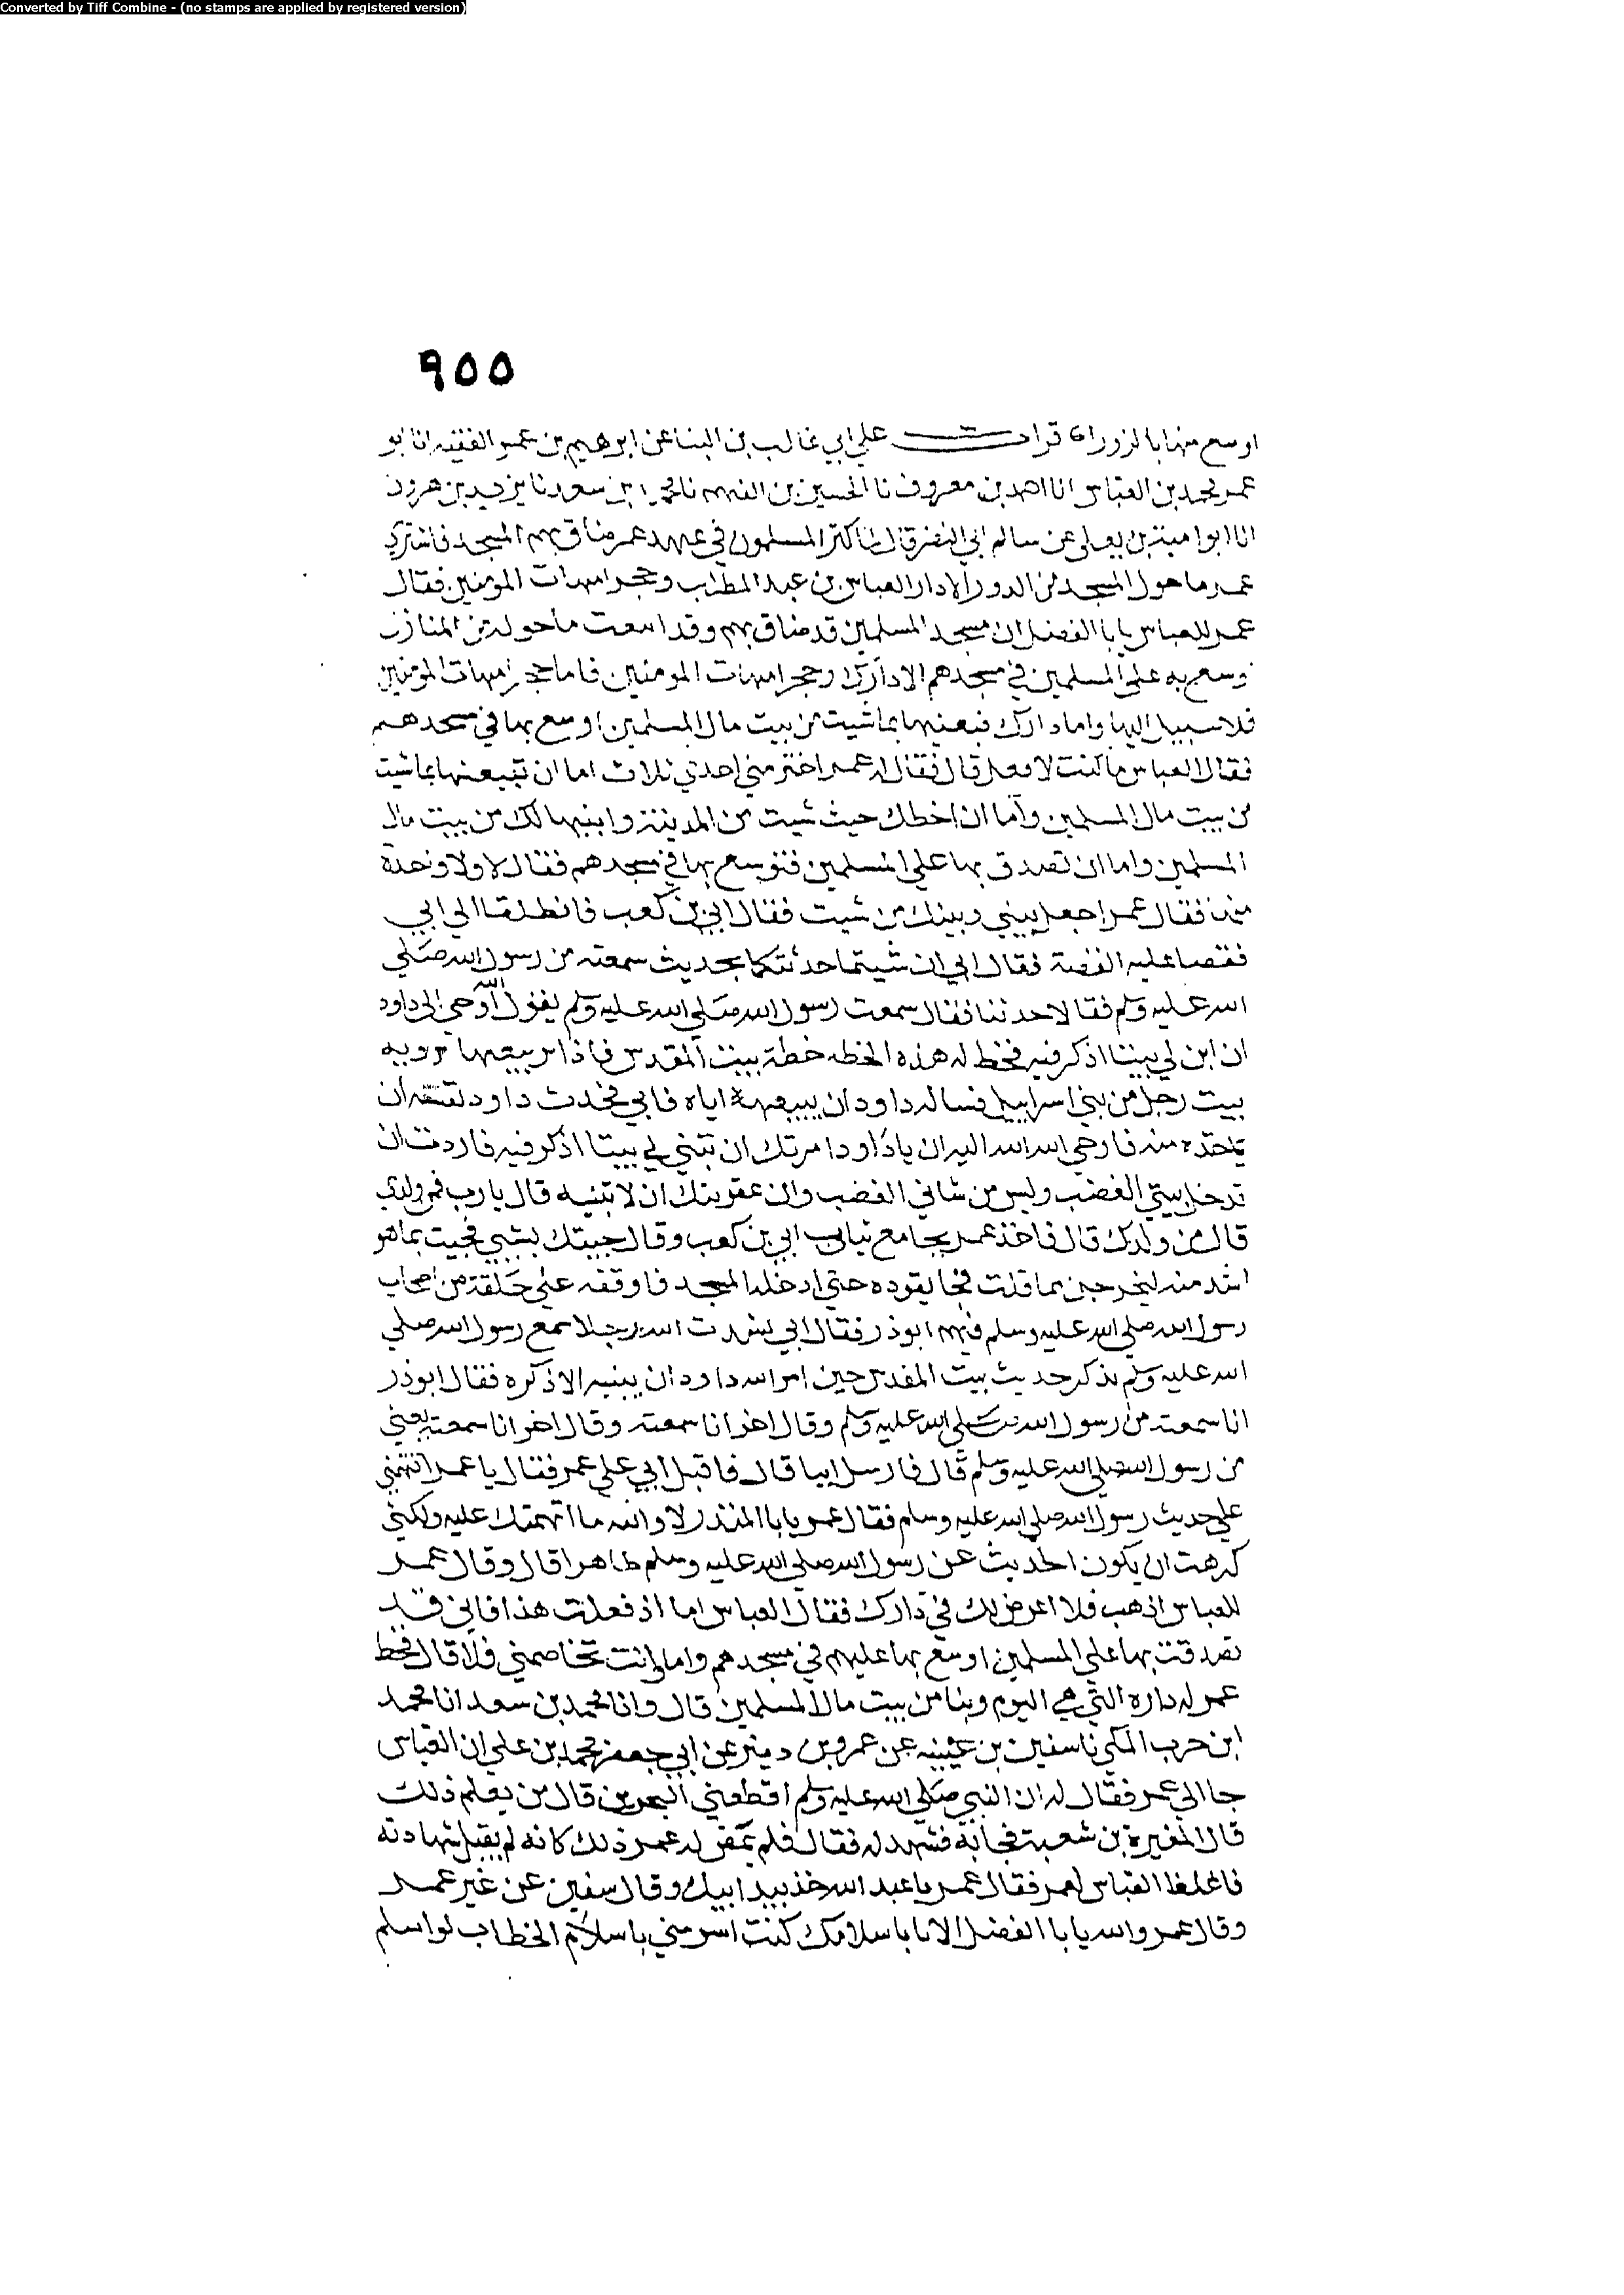 Converted by Tiff Combine - (no stamps are applied by registered version)
٩٥٥
اوسع منها بالزورا قرات علي ابي غالب بن البنا عن ابرهيم بن عمر الفقيه انا ابو
عمر محمد بن العباس انا احمد بن معروف نا الحسين بن الفهم نا محمد بن سعد نا يزيد بن هرون
انا ابو امية بن يعلى عن سالم ابي النضر قال لما كثر المسلمون في عهد عمر ضاق بهم المسجد فاشتري
عمر ما حول المسجد من الدور الا دار العباس بن عبد المطلب وحجر امهات المومنين فقال
عمر للعباس يابا الفضل ان مسجد المسلمين قد ضاق بهم وقد ابتعت ما حوله من المنازل
نوسع به على المسلمين في مسجدهم الا دارك وحجر امهات المومنين فاما حجر امهات المومنين
فلا سبيل اليها واما دارك فبعنيها بما شيت من بيت مال المسلمين اوسع بها في مسجدهم
فقال العباس ما كنت لافعل قال فقال له عمر اختر مني احدي ثلاث اما ان تبيعنيها بما شيت
من بيت مال المسلمين واما ان اخطك حيث شيت من المدينة وابنيها لك من بيت مال
المسلمين واما ان تصدق بها علي المسلمين فنوسع بها في مسجدهم فقال لا ولا واحدة
منها فقال عمر اجعل بيني وبينك من شيت فقال ابي بن كعب فانطلقا الي ابي
فقصا عليه القصة فقال ابي ان شيتما حدثتكما بحديث سمعته من رسول الله صلي
الله عليه وسلم فقالا حدثنا فقال سمعت رسول الله صلي الله عليه وسلم يقول ان الله اوحى الى داود
ان ابن لي بيتا اذكر فيه فخط له هذه الخطه خطة بيت المقدس فاذا تربيعها تزويه
بيت رجل من بني اسراييل فساله داود ان يبيعه اياه فابي فحدث داود نفسه ان
ياخذه منه فاوحى الله اليه ان ياداود امرتك ان تبني لي بيتا اذكر فيه فاردت ان
تدخل بيتي الغضب وليس من شاني الغضب وان عقوبتك ان لا تبنيه قال يارب فمن ولدي
قال من ولدك قال فاخذ عمر بجامع ثياب ابي بن كعب وقال جيتك بشيي فجيت بما هو
اشد منه لتخرجن مما قلت فجا يقوده حتي ادخله المسجد فاوقفه علي حلقة من اصحاب
رسول الله صلي الله عليه وسلم فيهم ابوذر فقال ابي نشدت الله رجلا سمع رسول الله صلي
الله عليه وسلم يذكر حديث بيت المقدس حين امر الله داود ان يبنيه الا ذكره فقال ابوذر
انا سمعته من رسول الله صلي الله عليه وسلم وقال اخر انا سمعته وقال اخر انا سمعته يعني
من رسول الله صلي الله عليه وسلم قال فارسل ابيا قال فاقبل ابي علي عمر فقال يا عمر اتتهمني
علي حديث رسول الله صلي الله عليه وسلم فقال عمر يابا المنذر لا والله ما اتهمتك عليه ولكني
كرهت ان يكون الحديث عن رسول الله صلي الله عليه وسلم ظاهرا قال وقال عمر
للعباس اذهب فلا اعرض لك في دارك فقال العباس اما اذ فعلت هذا فاني قد
تصدقت بها علي المسلمين اوسع بها عليهم في مسجدهم واما وانت تخاصمني فلا قال فخط
عمر له داره التي هي اليوم وبنا من بيت مال المسلمين قال وانا محمد بن سعد انا محمد
ابن حرب المكي نا سفين بن عيينه عن عمرو بن دينر عن ابي جعفر محمد بن علي ان العباس
جا الى عمر فقال له ان النبي صلي الله عليه وسلم اقطعني البحرين قال من يعلم ذلك
قال المغيرة بن شعبة فجا به فشهد له فقال فلم يمض له عمر ذلك كانه لم يقبل شهادته
فاغلظ العباس لعمر فقال عمر يا عبد الله خذ بيد ابيك وقال سفين عن غير عمر
وقال عمر والله يابا الفضل لانا باسلامك كنت اسر مني باسلام الخطاب لو اسلم